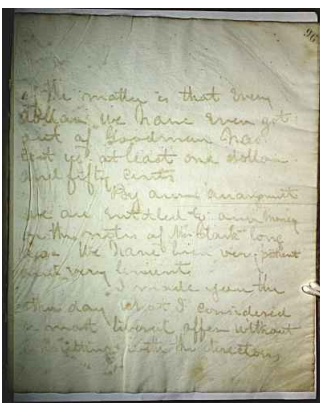 96
of the matter is that every
dollar we have ever got
out of Goodman has
cost us at least one dollar
and fifty cents
By our
we are entitled to our money
on the notes of Mr Stack long
ago We have been very patient
and very lenient
I made you the
other day what I considered
a most liberal offer without
with the directors